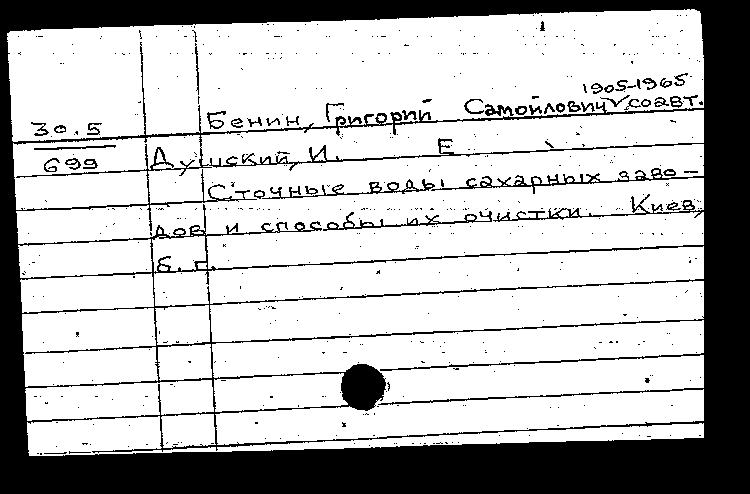 1905-1965
30.5 Бенин, Григорий Самойлович, соавт.
699 Душский, И. Е
Сточные воды сахарных заво-
дов и способы их очистки. Киев,
б. г.